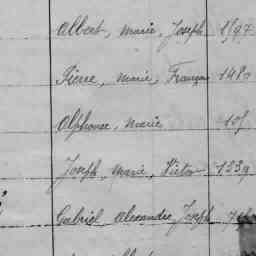 Albert, marie, Joseph 1597
Pierre, marie, Françoi 1480
Alphonse, Marie 101
Joseph, Marie, Victor 1339
Gabriel, Alexandre, Joseph